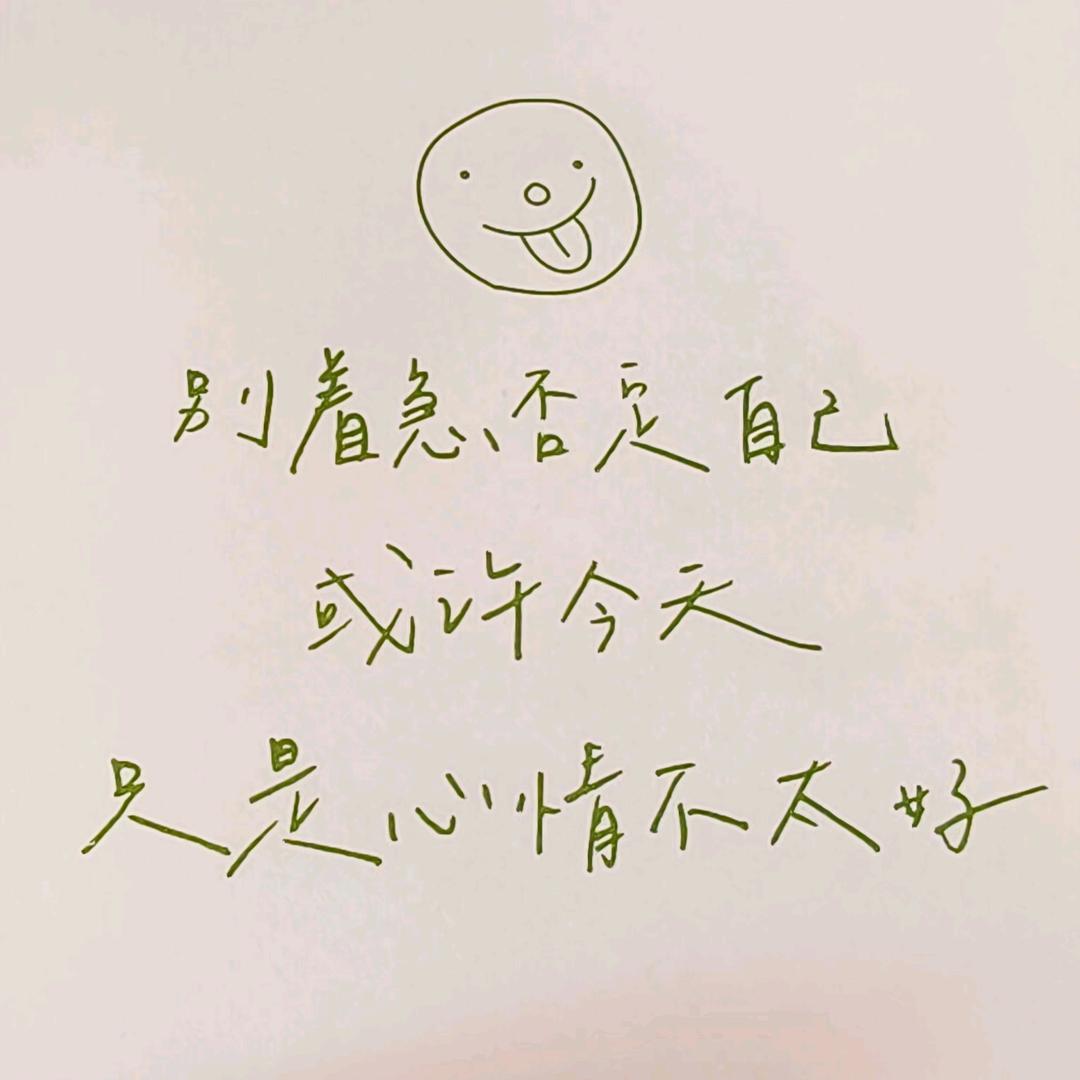 别着急否定自己
或许今天
只是心情不太好